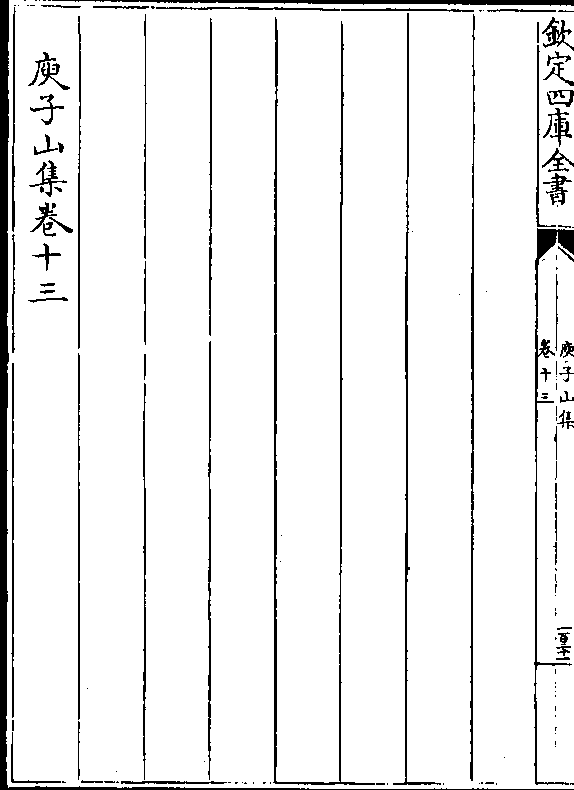 欽定四庫全書
庾子山集
卷十三
庾子山集卷十三